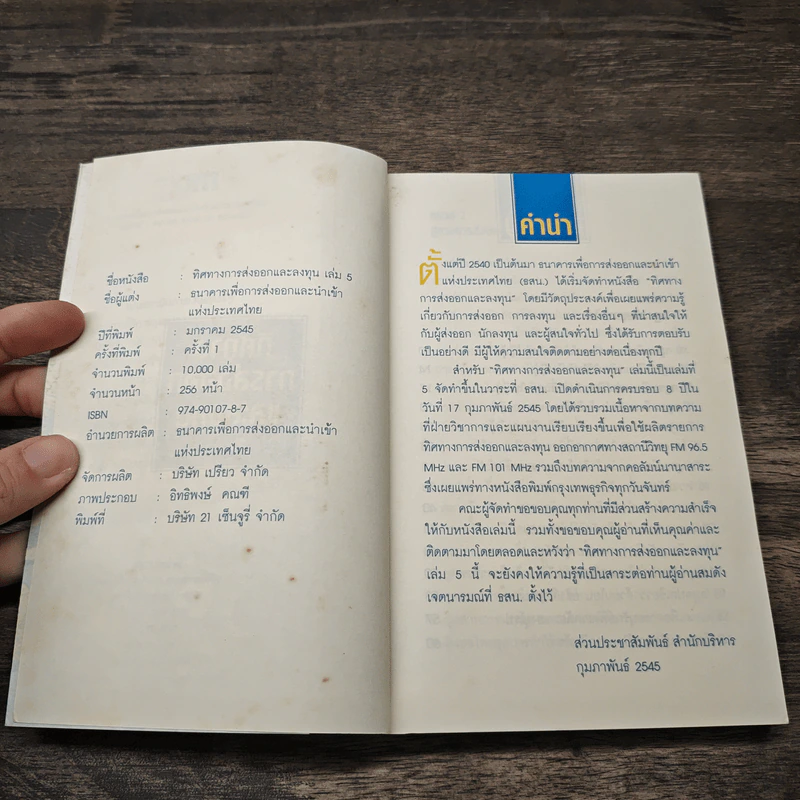 ชื่อหนังสือ : ทิศทางการส่งออกและลงทุน เล่ม 5
ชื่อผู้แต่ง : ธนาคารเพื่อการส่งออกและนำเข้า
แห่งประเทศไทย
ปีที่พิมพ์ : มกราคม 2545
ครั้งที่พิมพ์ : ครั้งที่ 1
จำนวนพิมพ์ : 10,000 เล่ม
จำนวนหน้า : 256 หน้า
ISBN : 974-90107-8-7
อำนวยการผลิต : ธนาคารเพื่อการส่งออกและนำเข้า
แห่งประเทศไทย
จัดการผลิต : บริษัท เปรียว จำกัด
ภาพประกอบ : อิทธิพงษ์ คณฑี
พิมพ์ที่ : บริษัท 21 เซ็นจูรี่ จำกัด
คำนำ
ตั้งแต่ปี 2540 เป็นต้นมา ธนาคารเพื่อการส่งออกและนำเข้า
แห่งประเทศไทย (ธสน.) ได้เริ่มจัดทำหนังสือ "ทิศทาง
การส่งออกและลงทุน" โดยมีวัตถุประสงค์เพื่อเผยแพร่ความรู้
เกี่ยวกับการส่งออก การลงทุน และเรื่องอื่นๆ ที่น่าสนใจให้
กับผู้ส่งออก นักลงทุน และผู้สนใจทั่วไป ซึ่งได้รับการตอบรับ
เป็นอย่างดี มีผู้ให้ความสนใจติดตามอย่างต่อเนื่องทุกปี
สำหรับ "ทิศทางการส่งออกและลงทุน" เล่มนี้เป็นเล่มที่
5 จัดทำขึ้นในวาระที่ ธสน. เปิดดำเนินการครบรอบ 8 ปีใน
วันที่ 17 กุมภาพันธ์ 2545 โดยได้รวบรวมเนื้อหาจากบทความ
ที่ฝ่ายวิชาการและแผนงานเรียบเรียงขึ้นเพื่อใช้ผลิตรายการ
ทิศทางการส่งออกและลงทุน ออกอากาศทางสถานีวิทยุ FM 96.5
MHz และ FM 101 MHz รวมถึงบทความจากคอลัมน์นานาสาระ
ซึ่งเผยแพร่ทางหนังสือพิมพ์กรุงเทพธุรกิจทุกวันจันทร์
คณะผู้จัดทำขอขอบคุณทุกท่านที่มีส่วนสร้างความสำเร็จ
ให้กับหนังสือเล่มนี้ รวมทั้งขอขอบคุณผู้อ่านที่เห็นคุณค่าและ
ติดตามมาโดยตลอดและหวังว่า "ทิศทางการส่งออกและลงทุน"
เล่ม 5 นี้ จะยังคงให้ความรู้ที่เป็นสาระต่อท่านผู้อ่านสมดัง
เจตนารมณ์ที่ ธสน. ตั้งไว้
ส่วนประชาสัมพันธ์ สำนักบริหาร
กุมภาพันธ์ 2545